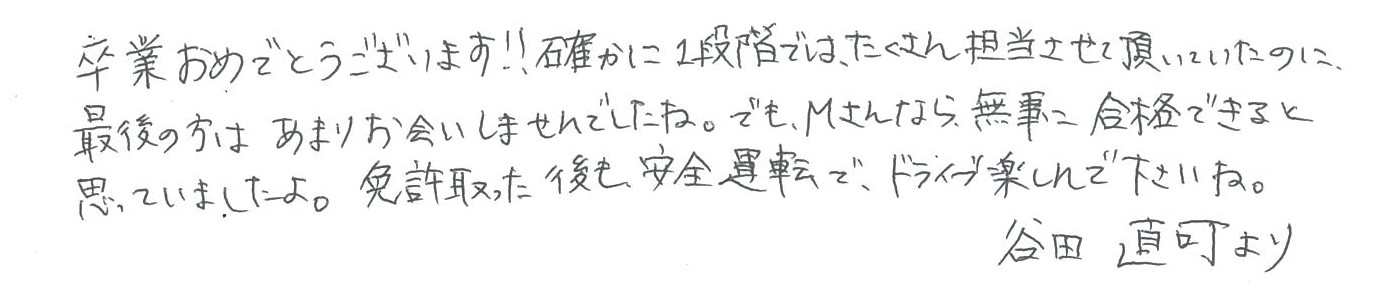 卒業おめでとうございます!!確かに1段階では、たくさん担当させて頂いていたのに、
最後の方はあまりお会いしませんでしたね。でも、Mさんなら、無事に合格できると
思っていましたよ。免許取った後も、安全運転で、ドライブ楽しんで下さいね。
谷田 直可より